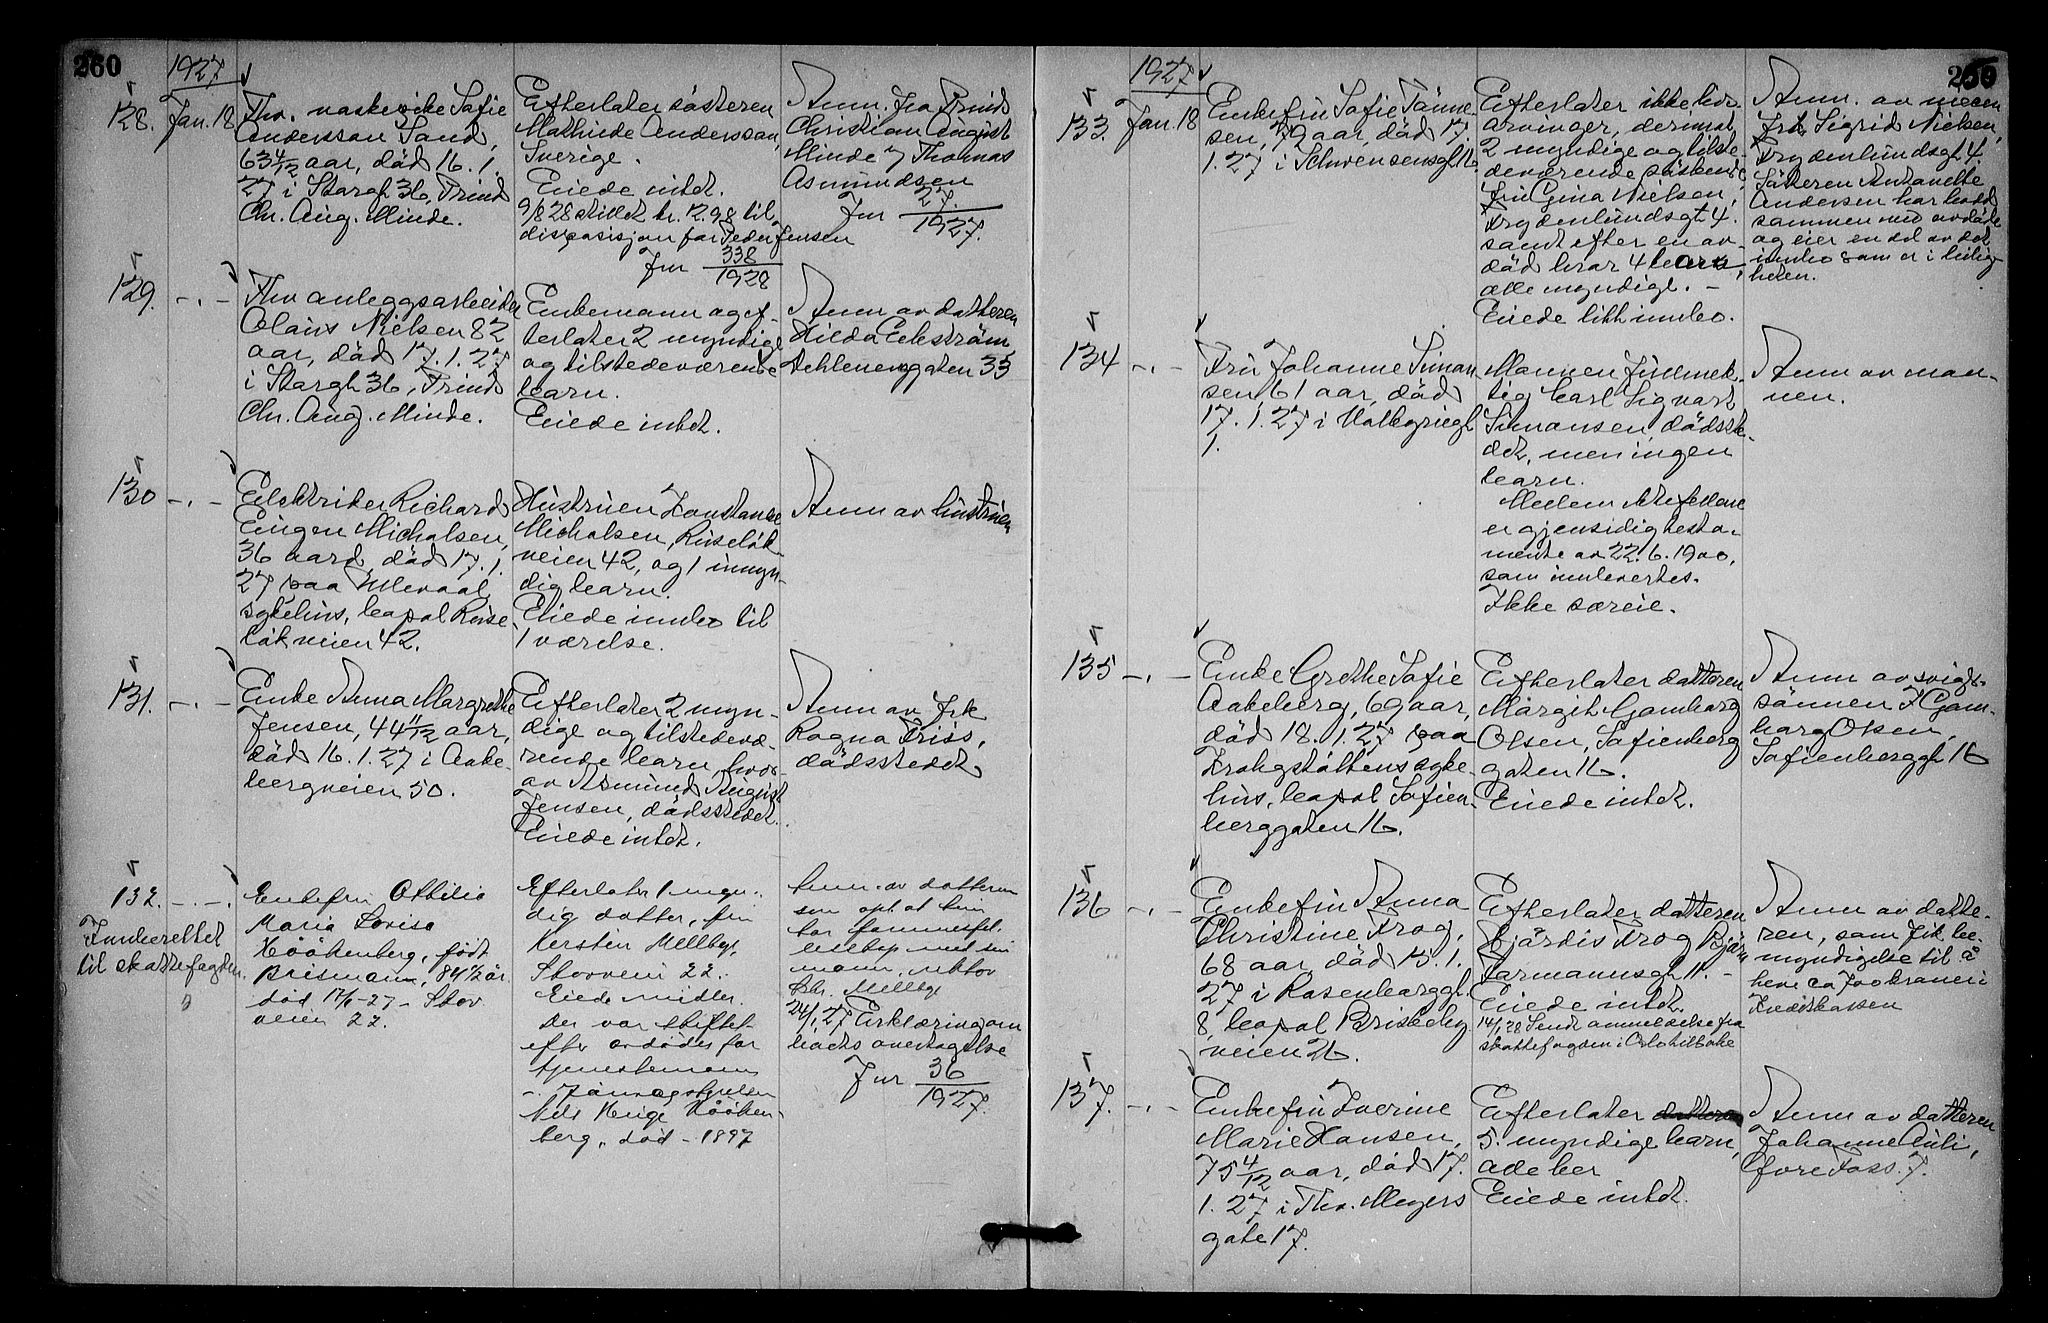 260
1927
128. Jan. 18
Fhv. vaskepike Sofie
Andersson Sand,
63 4/12 aar, död 16. 1.
27 i Storgt 36, Prind
Chr. Aug. Minde.
Efterlater søsteren
Mathilde Andersson,
Sverige.
Eiede intet.
9/8 28 stillet kr. 12.98 til
disposisjon for Peder Jensen
Jnr 338/1928
Anm. fra Prinds
Christian August
Minde v Thomas
Asmundsen
Jnr 27/1927.
129. -.-
Fhv anleggsarbeider
Olaus Nielsen 82
aar, död 17. 1. 27
i Storgt 36, Prinds
Chr. Aug. Minde.
Enkemann og ef-
terlater 2 myndige
og tilstedeværende
barn.
Eiede intet.
Anm av datteren
Hilda Eckström
gaten 33
130 -.-
Elektriker Richard
Eugen Michalsen,
36 aar, död 17. 1.
27 paa Ullevaal
sykehus, bopæl Ruse-
lökveien 42.
Hustruen Konstanse
Michalsen, Ruselök-
veien 42, og 1 umyn-
dig barn.
Eiede innbo til
1 værelse.
Anm av hustruen
131. -.-
Enke Anna Margrethe
Jensen, 44 11/12 aar,
död 16. 1. 27 i Aake-
bergveien 50.
Efterlater 2 myn-
dige og tilstedevæ-
rende barn, hvor-
av Asmund August
Jensen, dödsstedet.
Eiede intet.
Anm av frk
Ragna Friis,
dödsstedet
132. -.-
Innberettet
til skattefogden.
Enkefru Othilia
Maria Lovisa
Höökenberg, födt
Brismann, 84 1/2 år
död 17/1-27 - Stor
veien 22.
Efterlater 1 myn-
dig datter, fru
Kersten Mellbye,
Storveien 22.
Eiede midler.
Der var skiftet
efter avdödes for
tjenestemann
Nils Herige Hööken-
berg, död - 1897
Anm. av datteren
som opl. at hun
har formuesfel-
leskap med sin
mann, rektor
Chr. Mellbye
24/1 27 Erklæring om
boets overtagelse
Jnr 36/1927.
1927
259
133. Jan. 18
Enkefru Sofie Tönne-
sen, 79 aar, död 17.
1. 27 i Schwensensgt 16
Efterlater ikke livs-
arvinger, derimot
2 myndige og tilste-
deværende söskend:
Fru Gina Nielsen,
Frydenlundsgt 4.
samt efter en av-
död bror 4 barn,
alle myndige. -
Eiede litt innbo.
Anm. av niecen
Frk Sigrid Nielsen,
Frydenlundsgt 4.
Søsteren Antonette
Andersen har bodd
sammen med avdøde
og eier en del av det
innbo som er i leilig-
heten.
134 -.-
Fru Johanne Simon-
sen, 61 aar, död
17. 1. 27 i
1.
Mannen fullmek-
tig Carl Sigvart
Simonsen, dödsste-
det, men ingen
barn.
Mellem ektefellene
er gjensidig testa-
mente av 22. 6. 1900,
som innlevertes.
Ikke særeie.
Anm av man-
nen.
135 -.-
Enke Grethe Sofie
Aakeberg, 69 aar,
död 18. 1. 27 paa
Krohgstöttens syke-
hus, bopæl Sofien-
berggaten 16.
Efterlater datteren
Margit Gamborg
Olsen, Sofienberg
gaten 16.
Eiede intet.
Anm av svigr-
sønnen F Gam-
borg Olsen,
Sofienberggt 16
136 -.-
Enkefru Anna
Christine Frog,
68 aar, död 15. 1.
27 i Rosenborggt.
8, bopæl Briskeby
veien 26.
Efterlater datteren
Hjördis Frog Bjärn
Farmannsgt 11. -
Eiede intet.
14/1 28 Sendt anmeldelse fra
skattefogden i Oslo tilbake
Anm av datte-
ren, som fik be-
myndigelse til å
heve ca 700 kroner i
Kreditkassen
137. -.-
Enkefru Iverine
Marie Hansen,
75 4/12 aar, död 17.
1. 27 i Thv. Meyers
gate 17.
Efterlater datteren
5. myndige barn,
alle her
Eiede intet.
Anm av datteren
Johanne Auli,
Övre Foss. 7.